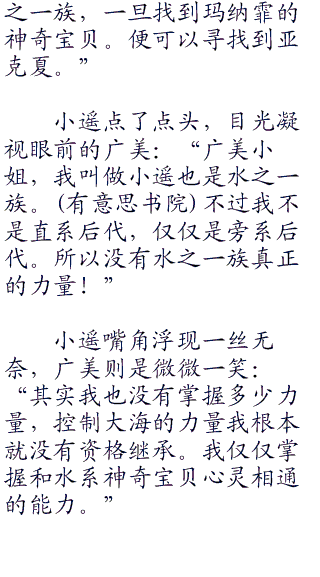 之一族，一旦找到玛纳霏的
神奇宝贝。便可以寻找到亚
克夏。”
小遥点了点头，目光凝
视眼前的广美：“广美小
姐，我叫做小遥也是水之一
族。(有意思书院)不过我不
是直系后代，仅仅是旁系后
代。所以没有水之一族真正
的力量！”
小遥嘴角浮现一丝无
奈，广美则是微微一笑：
“其实我也没有掌握多少力
量，控制大海的力量我根本
就没有资格继承。我仅仅掌
握和水系神奇宝贝心灵相通
的能力。”